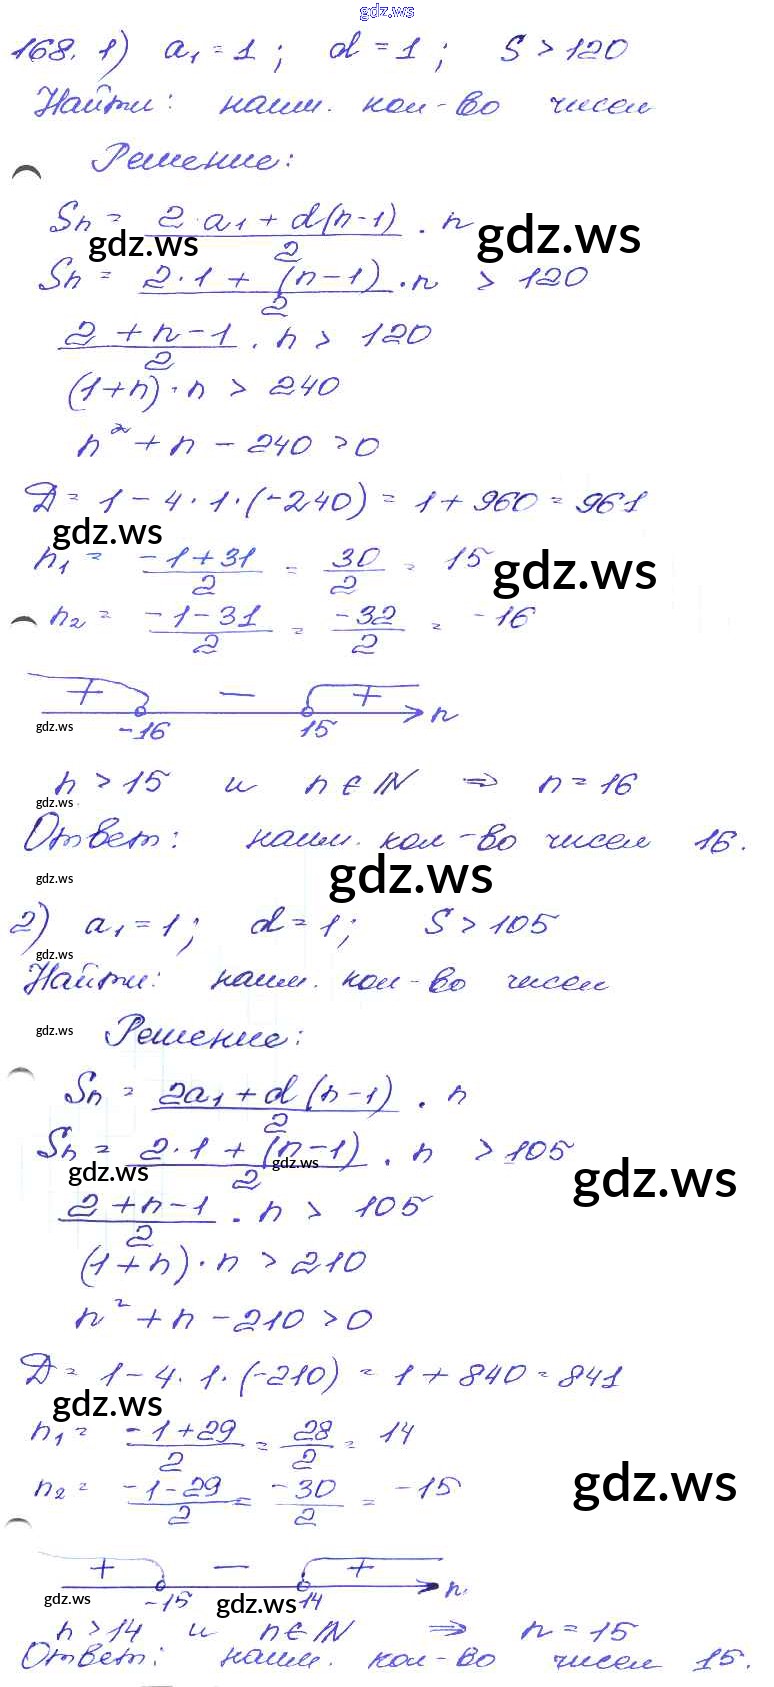 gdz.ws
168. 1) a₁ = 1; d = 1; S > 120
Найти: наим. кол-во чисел
Решение:
Sn = (2·a₁ + d(n-1))/2 · n
gdz.ws gdz.ws
Sn = (2·1 + (n-1))/2 · n > 120
(2 + n - 1)/2 · n > 120
(1+n)·n > 240
n² + n - 240 > 0
D = 1 - 4·1·(-240) = 1 + 960 = 961
gdz.ws
n₁ = (-1+31)/2 = 30/2 = 15
gdz.ws
n₂ = (-1-31)/2 = -32/2 = -16
+ - +
gdz.ws -16 15 n
n > 15 и n ∈ IN ⇒ n = 16
gdz.ws
Ответ: наим. кол-во чисел 16.
gdz.ws gdz.ws
2) a₁ = 1; d = 1; S > 105
gdz.ws
Найти: наим. кол-во чисел
gdz.ws
Решение:
Sn = (2a₁ + d(n-1))/2 · n
Sn = (2·1 + (n-1))/2 · n > 105
gdz.ws gdz.ws gdz.ws
(2+n-1)/2 · n > 105
(1+n)·n > 210
n² + n - 210 > 0
D = 1 - 4·1·(-210) = 1 + 840 = 841
gdz.ws
n₁ = (-1+29)/2 = 28/2 = 14
n₂ = (-1-29)/2 = -30/2 = -15
gdz.ws
+ - +
-15 14 n
gdz.ws gdz.ws
n > 14 и n ∈ IN ⇒ n = 15
Ответ: наим. кол-во чисел 15.